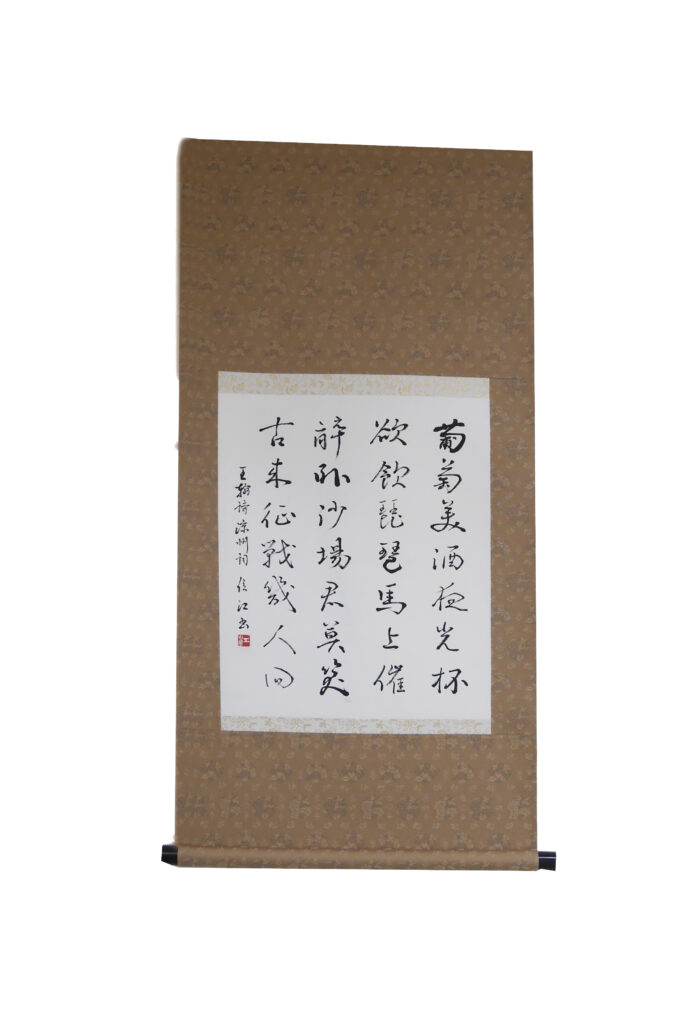 葡萄美酒夜光杯
欲飲琵琶馬上催
醉臥沙場君莫笑
古来征戰幾人回
王翰詩涼州詞 江書